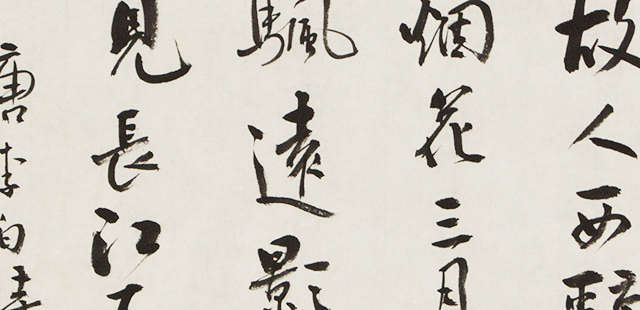 故人西
烟花三月
颿遠影
見長江
唐李白